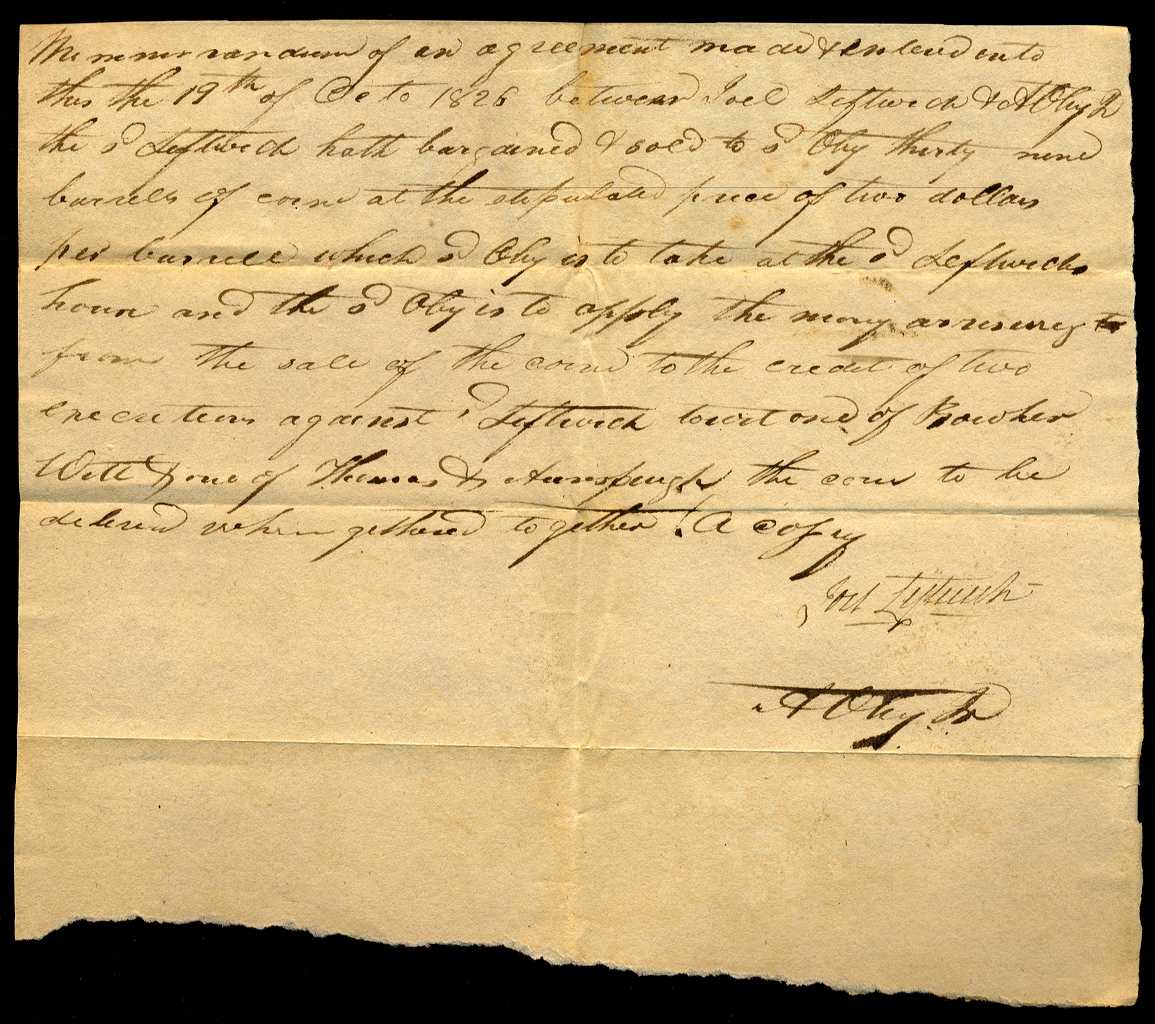 Memmorandum of an agreement made & enterd into
this the 19th of Octo 1826 between Joel Leftwich & A Oby Jr
the sd Leftwich hath bargained & sold to sd Oby thirty nine
barrels of corn at the stipulated price of two dollars
per barrell which sd Oby is to take at the sd Leftwichs
house and the sd Oby is to apply the mony arriseing
from the sale of the corn to the credit of two
executions against sd Leftwich towit one of Bowker
Witt & one of Thomas & the corn to be
deliverd when gethered together (A copy
Joel Leftwich
A Oby Jr